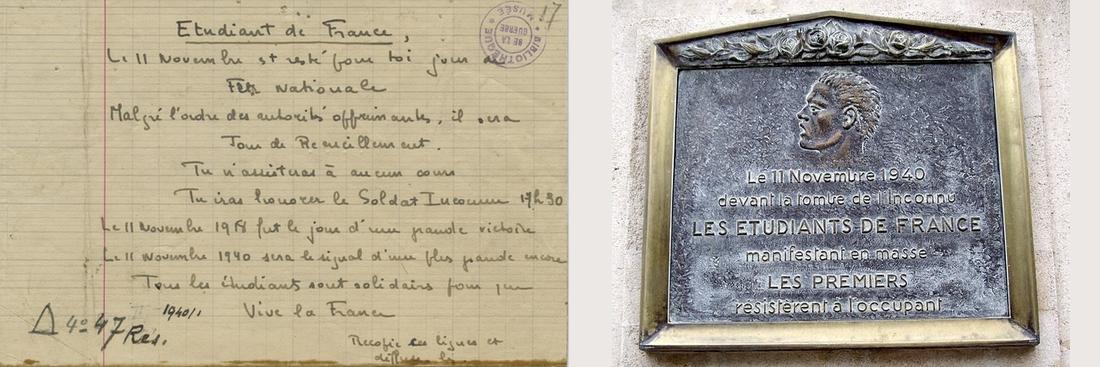 17
BIBLIOTHÈQUE
MUSÉE
DE LA
GUERRE
Etudiant de France,
Le 11 Novembre est resté pour toi jour de
Fête nationale
Malgré l'ordre des autorités opprimantes, il sera
Jour de Recueillement.
Tu n'assisteras à aucun cours
Tu iras honorer le Soldat Inconnu 17h30
Le 11 Novembre 1918 fut le jour d'une grande victoire
Le 11 Novembre 1940 sera le signal d'une plus grande encore
Tous les étudiants sont solidaires pour que
Vive la France
Δ 4º 47 Rés.
1940/1
Recopie ces lignes et
diffuse les
Le 11 Novembre 1940
devant la tombe de l'Inconnu
LES ETUDIANTS DE FRANCE
manifestant en masse
LES PREMIERS
résistèrent à l'occupant